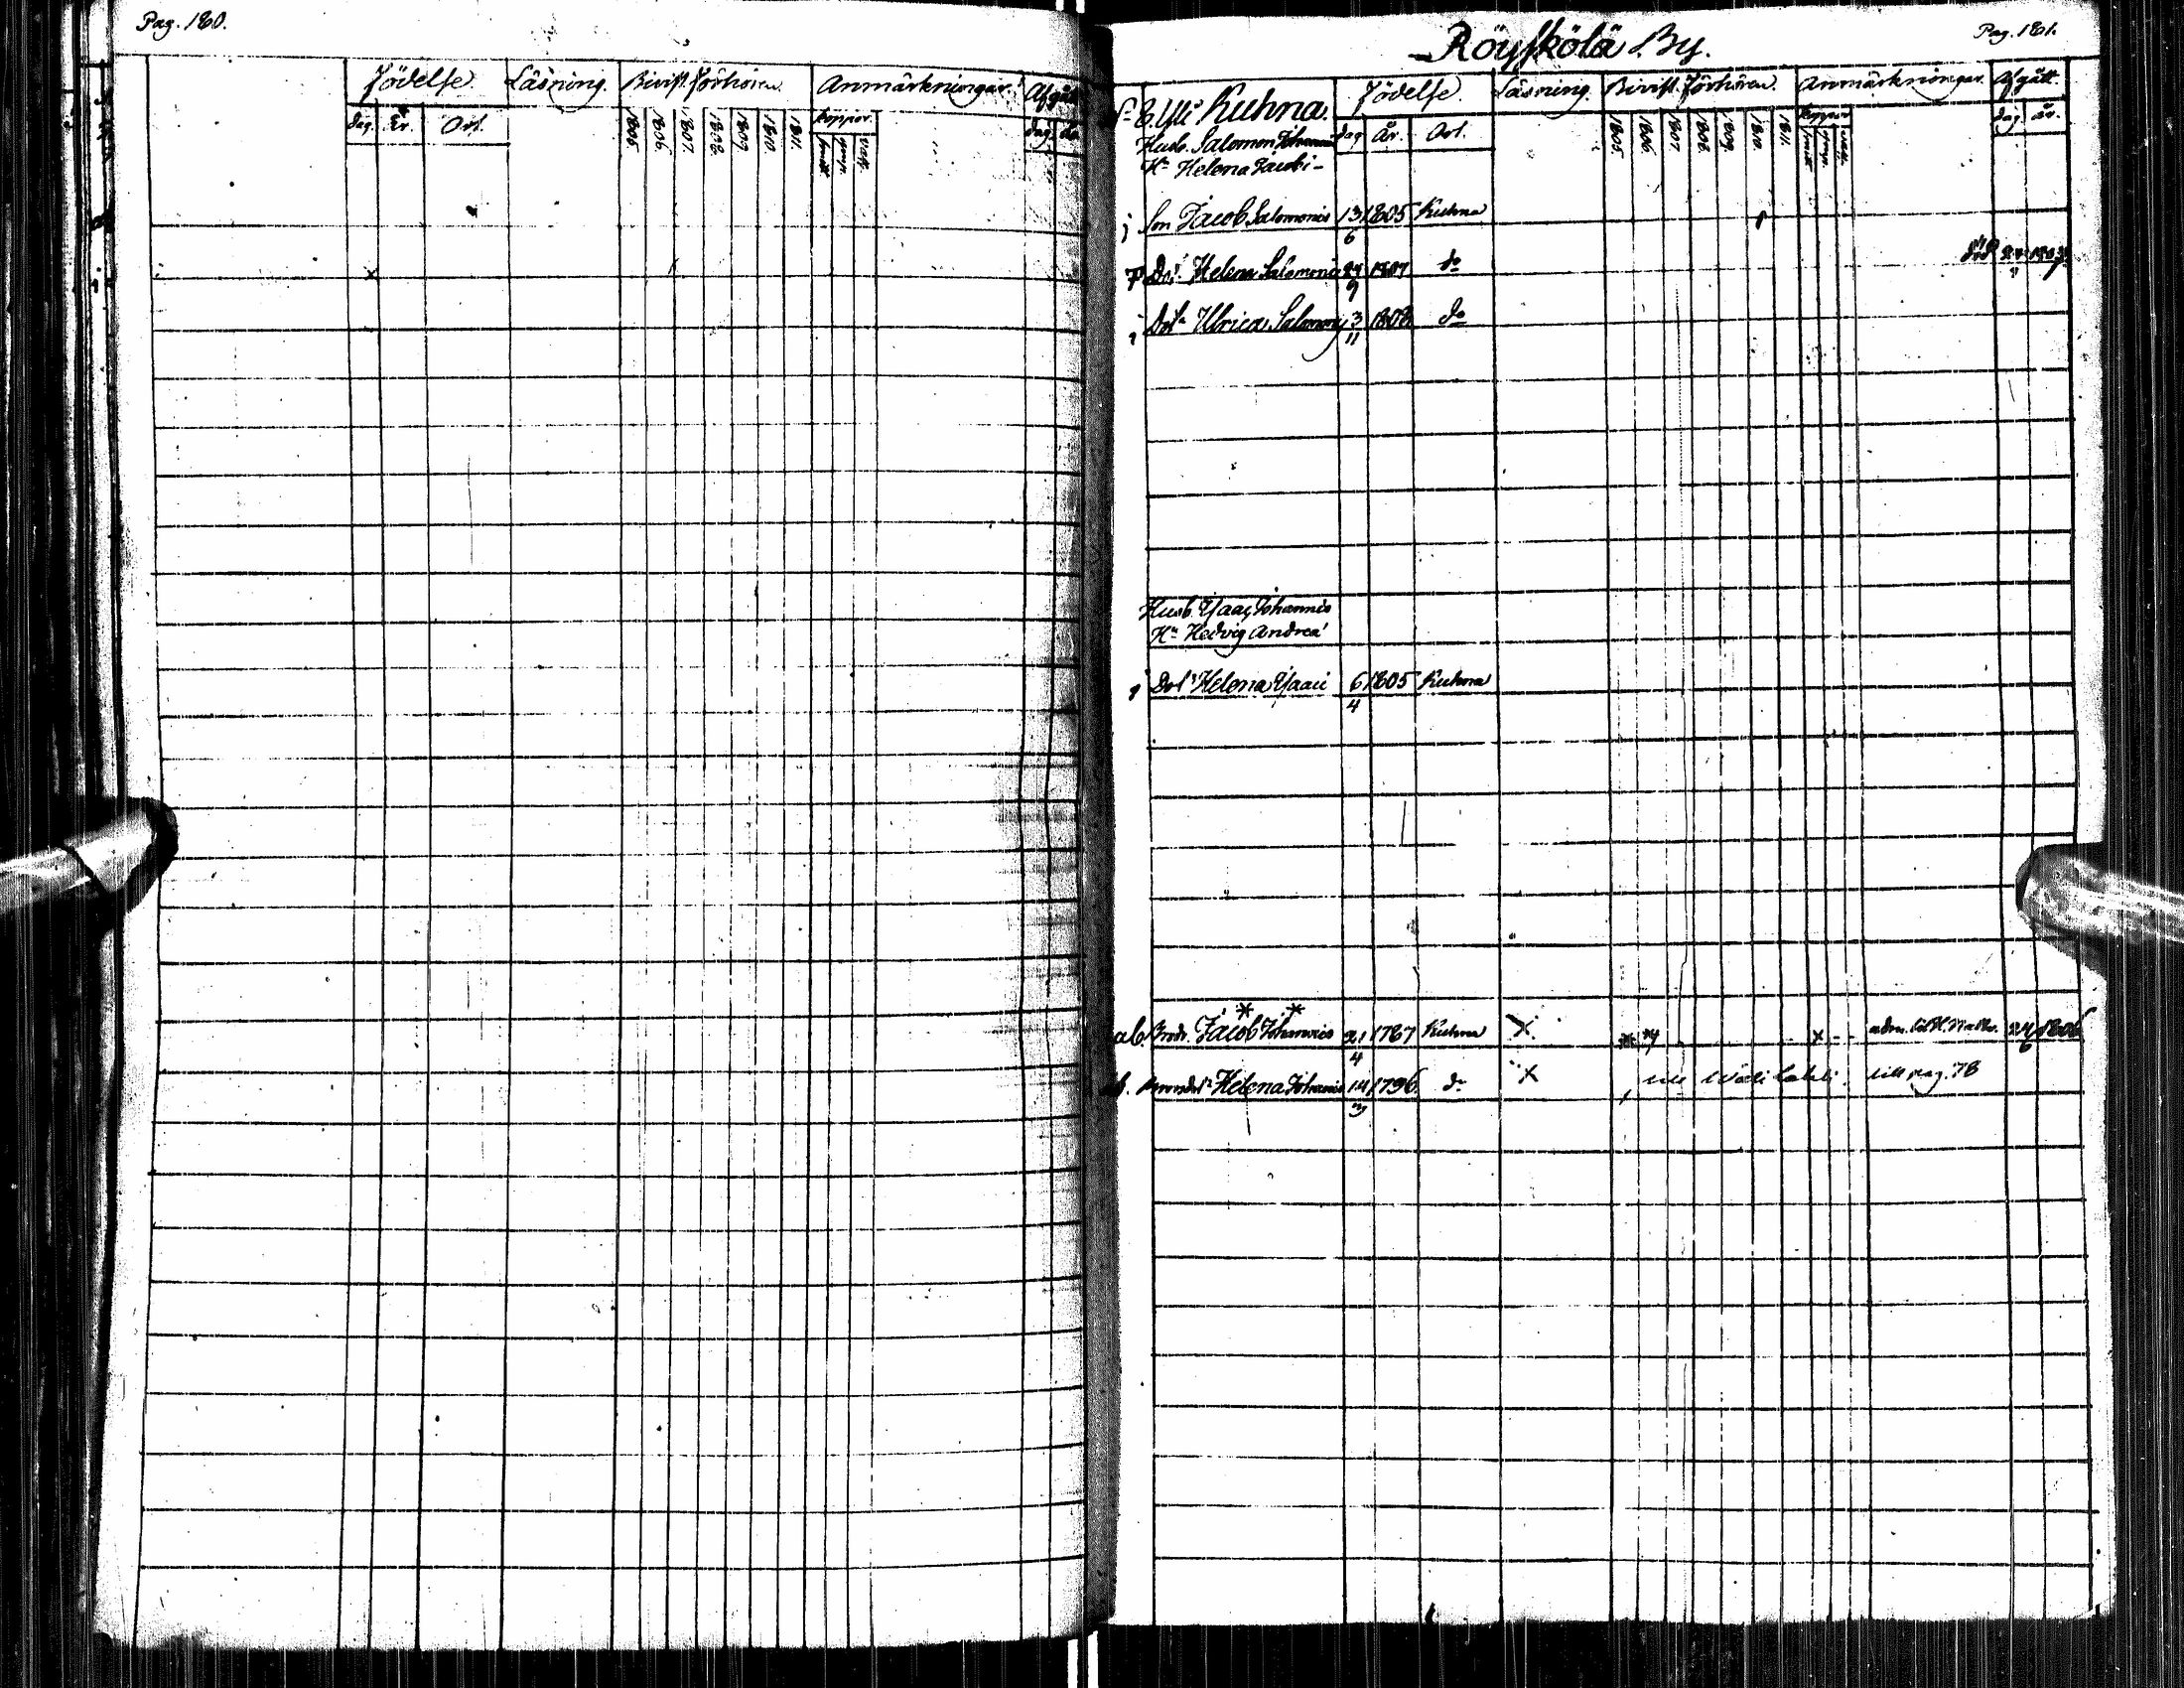 Pag. 180.
Födelse. Läsning. Bivist. förhören. Anmärkningar. Afgått
dag. År. Ort. 1805. 1806. 1807. 1808. 1809. 1810. 1811. koppor. dag. år.
Pag. 181.
Röyskölä By.
Födelse. Läsning. Bivist. förhören. Anmärkningar. Afgått.
Kuhna.
dag. År. Ort. 1805. 1806. 1807. 1808. 1809. 1810. 1811. koppor dag. år.
Husb. Salomon Johannis
Hu Helena Jacobi
Son Jacob Salomonis 13/6 1805 Kuhna
Dotr Helena Salomonis 24/9 1807 do död
Dotr Ulrica Salomon 3/11 1808 do
Husb. Isaac Johannis
Hu Hedvig Andreæ
Dotr Helena Isaaci 6/4 1805 Kuhna
ab. Brodr. Jacob Johannis 21/4 1787 Kuhna X 24/6 1806
Helena Johannis 14 1796 do X till pag. 78